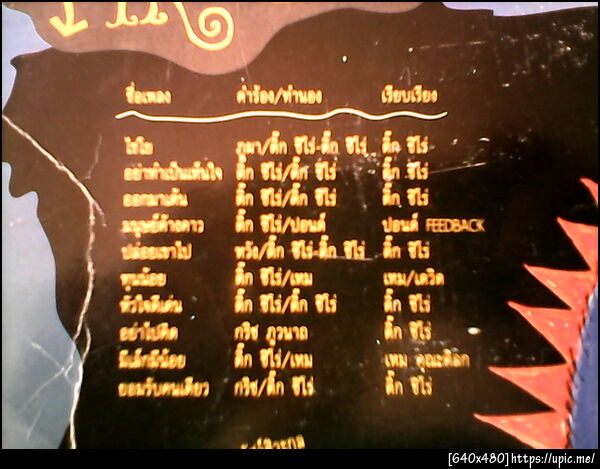 ชื่อเพลง คำร้อง/ทำนอง เรียบเรียง
ไฮโย ภูผา/ติ๊ก ชีโร่-ติ๊ก ชีโร่ ติ๊ก ชีโร่
อย่าทำเป็นเห็นใจ ติ๊ก ชีโร่/ติ๊ก ชีโร่ ติ๊ก ชีโร่
ออกมาเต้น ติ๊ก ชีโร่/ติ๊ก ชีโร่ ติ๊ก ชีโร่
มนุษย์ค้างคาว ติ๊ก ชีโร่/ปอนด์ ปอนด์ FEEDBACK
ปล่อยเขาไป หวัง/ติ๊ก ชีโร่-ติ๊ก ชีโร่ ติ๊ก ชีโร่
ทุนน้อย ติ๊ก ชีโร่/เหม เหม/เดวิด
หัวใจดีเด่น ติ๊ก ชีโร่/ติ๊ก ชีโร่ ติ๊ก ชีโร่
อย่าไปคิด กริช ภูวนาถ ติ๊ก ชีโร่
มีเล็กมีน้อย ติ๊ก ชีโร่/เหม เหม
ยอมรับคนเดียว กริช/ติ๊ก ชีโร่ ติ๊ก ชีโร่
[640x480]https://upic.me/